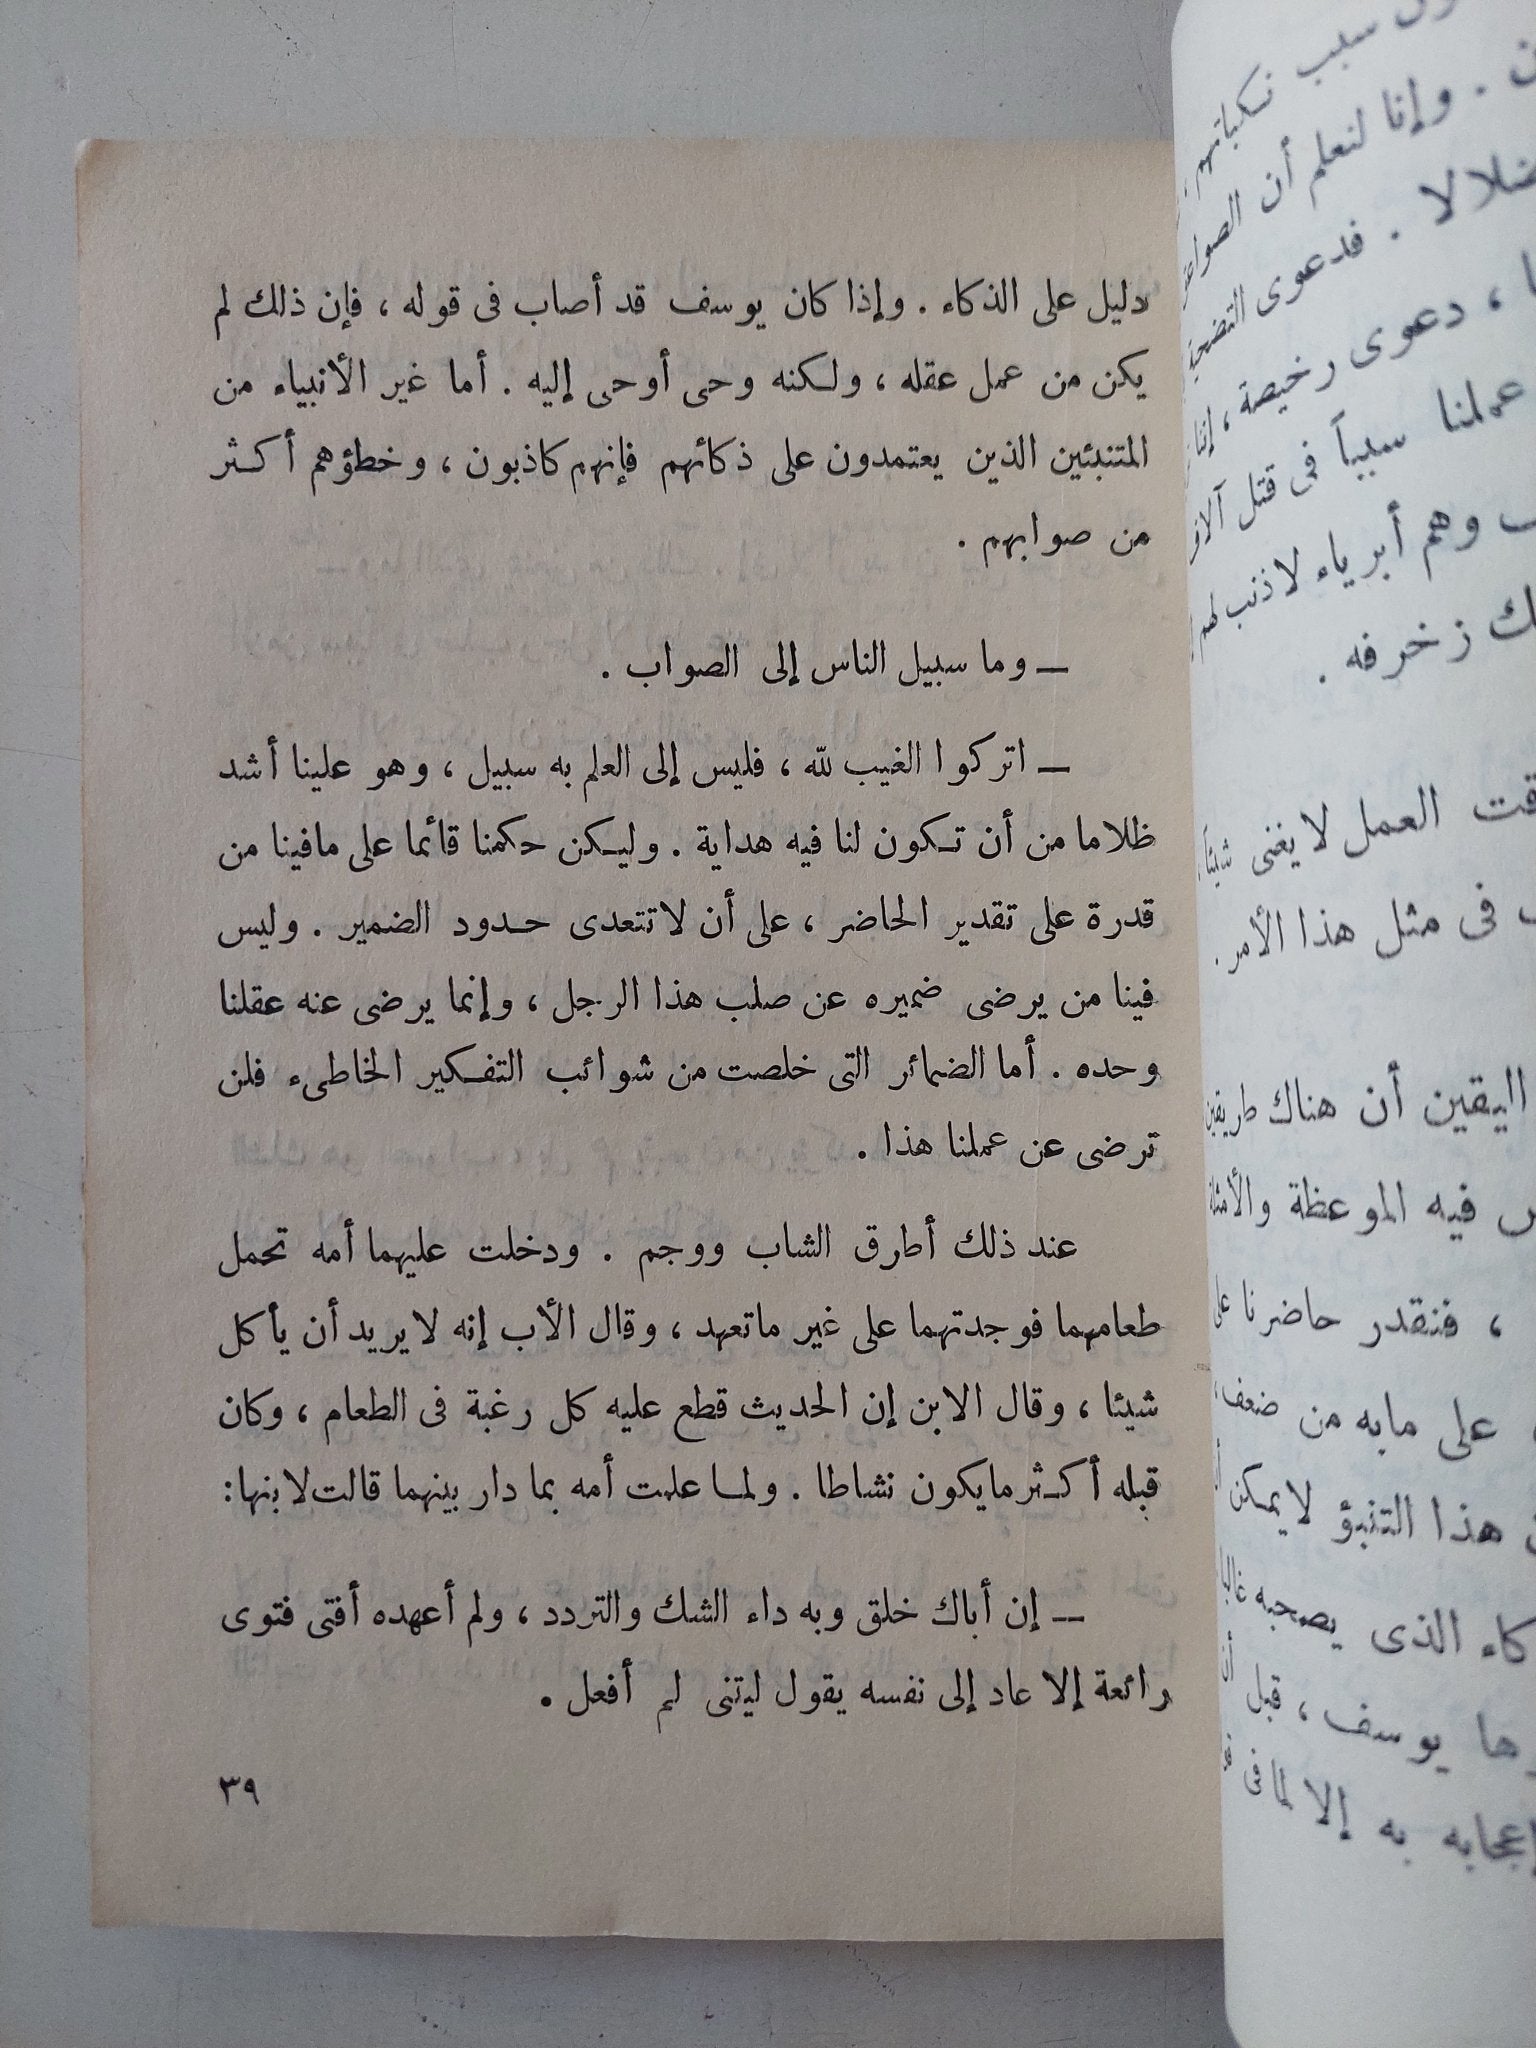 دليل على الذكاء . وإذا كان يوسف قد أصاب فى قوله ، فإن ذلك لم
يكن من عمل عقله ، ولكنه وحى أوحى إليه . أما غير الأنبياء من
المتنبئين الذين يعتمدون على ذكائهم فإنهم كاذبون ، وخطؤهم أكثر
من صوابهم .
— وما سبيل الناس إلى الصواب .
— اتركوا الغيب لله ، فليس إلى العلم به سبيل ، وهو علينا أشد
ظلاما من أن تكون لنا فيه هداية . وليكن حكمنا قائما على مافينا من
قدرة على تقدير الحاضر ، على أن لا تتعدى حدود الضمير . وليس
فينا من يرضى ضميره عن صلب هذا الرجل ، وإنما يرضى عنه عقلنا
وحده . أما الضمائر التى خلصت من شوائب التفكير الخاطىء فلن
ترضى عن عملنا هذا .
عند ذلك أطرق الشاب ووجم . ودخلت عليهما أمه تحمل
طعامهما فوجدتهما على غير ماتعهد ، وقال الأب إنه لا يريد أن يأكل
شيئا ، وقال الابن إن الحديث قطع عليه كل رغبة فى الطعام ، وكان
قبله أكثر مايكون نشاطا . ولما علمت أمه بما دار بينهما قالت لابنها :
— إن أباك خلق وبه داء الشك والتردد ، ولم أعهده أفتى فتوى
رائعة إلا عاد إلى نفسه يقول ليتنى لم أفعل .
٣٩
سبب نكباتهم
. وإنا لنعلم أن
ضلالا . فدعوى
، دعوى رخيصة ،
عملنا سبباً فى قتل
وهم أبرياء لاذنب لهم
زخرفه .
العمل لايغنى شيئاً
فى مثل هذا الأمر .
اليقين أن هناك طريقين
فيه الموعظة
، فنقدر حاضرنا
على مابه من ضعف ،
هذا التنبؤ لايمكن
الذى يصحبه
يوسف ، قبل أن
إعجابه به إلا لما فى